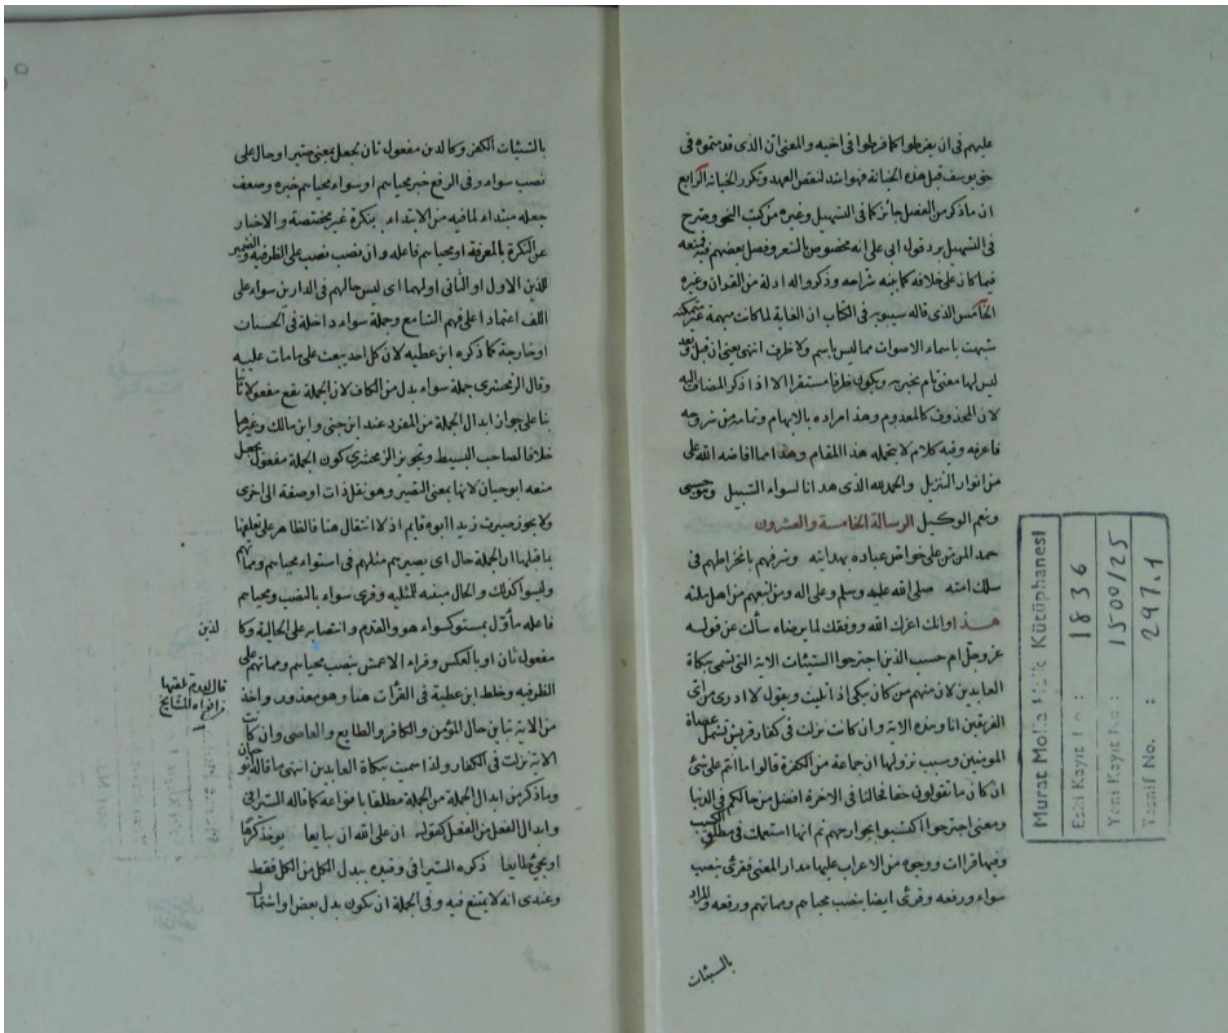 عليهم في ان يفرطوا كما فرطوا في اخيه والمعنى ان الذى قدمتموه في
حق يوسف قبل هذه الخيانة فهو اشد لنقص العهد وتكرر الخيانة الرابع
ان ما ذكر من الفصل جائز كما في التسهيل وغيره من كتب النحو وصرح
في التسهيل برد قول ابى على انه مخصوص بالشعر وفصل بعضهم فيه فمنعه
فيما كان على خلافه كما بينه شراحه وذكروا له ادلة من القران وغيره
الخامس الذى قاله سيبويه في الكتاب ان الغاية لما كانت مبهمة غير متمكنه
شبهت باسماء الاصوات مما ليس باسم ولا ظرف انتهى يعنى ان قبل وبعد
ليس لها معنى تام يخبر به ويكون ظرفا مستقرا الا اذا ذكر المضاف اليه
لان المحذوف كالمعدوم وهذا مراده بالابهام وتمامه من شروحه
فاعرفه وفيه كلام لا يتحمله هذا المقام وهذا مما افاضه الله على
من انوار التنزيل والحمد لله الذى هدانا لسواء السبيل وهو حسبى
ونعم الوكيل الرسالة الخامسة والعشرون
حمد المن من على خواص عباده بهدايته وشرفهم بانخراطهم في
سلك امته صلى الله عليه وسلم وعلى اله ومن اتبعهم من اهل ملته
هذا وانك اعزك الله ووفقك لما يرضاه سألت عن قوله
عز وجل ام حسب الذين اجترحوا السيئات الاية التي تسمى مبكاة
العابدين لان منهم من كان يبكى اذا تليت ويقول لا ادرى من اى
الفريقين انا وهذه الاية وان كانت نزلت في كفار قريش تشمل عصاة
المومنين وسبب نزولها ان جماعة من الكفرة قالوا ما انتم على شئ
ان كان ما تقولون حقا فحالنا في الاخرة افضل من حالكم في الدنيا
ومعنى اجترحوا اكتسبوا بجوارحهم ثم انها استعملت في مطلق الكسب
وفيها قراات ووجوه من الاعراب عليها مدار المعنى فقرئ بنصب
سواء ورفعه وقرئ ايضا بنصب محياهم ومماتهم ورفعه والمراد
بالسيئات
بالسيئات الكفر وكالذين مفعول ثان لجعل بمعنى صير او حال على
نصب سواء وفى الرفع خبر محياهم او سواء محياهم خبره وضعف
جعله مبتداء لما فيه من الابتداء بنكرة غير مختصة والاخبار
عن النكرة بالمعرفة او محياهم فاعله وان نصب نصب على الظرفيه والضمير
للذين الاول او الثانى او لهما اى ليس حالهم في الدارين سواء على
اللف اعتمادا على فهم السامع وجملة سواء داخلة في الحسبان
او خارجة كما ذكره ابن عطيه لان كل احد يبعث على ما مات عليه
وقال الزمخشرى جملة سواء بدل من الكاف لان الجملة تقع مفعولا ثانيا
بنا على جواز ابدال الجملة من المفرد عند ابن جنى وابن مالك وغيرهما
خلافا لصاحب البسيط وتجويز الزمخشرى كون الجملة مفعول يجعل
منعه ابو حيان لانها بمعنى التصيير وهو نقل ذات او صفة الى اخرى
ولا يجوز صيرت زيدا ابوه قايم اذ لا انتقال هنا فالظاهر على تعلقها
بما قبلها ان الجملة حال اى يصيرهم مثلهم في استواء محياهم ومماتهم
وليسوا كذلك والحال مبينه للمثليه وقرئ سواء بالنصب ومحياهم
فاعله ماول بمستو كسواء هو والعدم وانتصابه على الحالية وكا
لذين
مفعول ثان او بالعكس وقراء الاعمش بنصب محياهم ومماتهم على
الظرفيه وخلط ابن عطية في القرآت هنا وهو معذور واخذ
قال
من الاية تباين حال المؤمن والكافر والطايع والعاصى وان كانت
الاية نزلت في الكفار ولذا سميت مبكاة العابدين انتهى ما قاله ابو حيان
وما ذكر من ابدال الجملة من الجملة مطلقا بانواعه كما قاله السيرافى
وابدال الفعل من الفعل كقوله ان على الله ان تبايعا يوخذ كرها
او يجئ طايعا ذكره السيرافى وقيده ببدل الكل من الكل فقط
وعندى انه لا يمتنع فيه وفى الجملة ان يكون بدل بعض او اشتمال
Murat Molla Halk Kütüphanesi
Eski Kayıt No : 1836
Yeni Kayıt No : 1500/25
Tasnif No. : 297.1